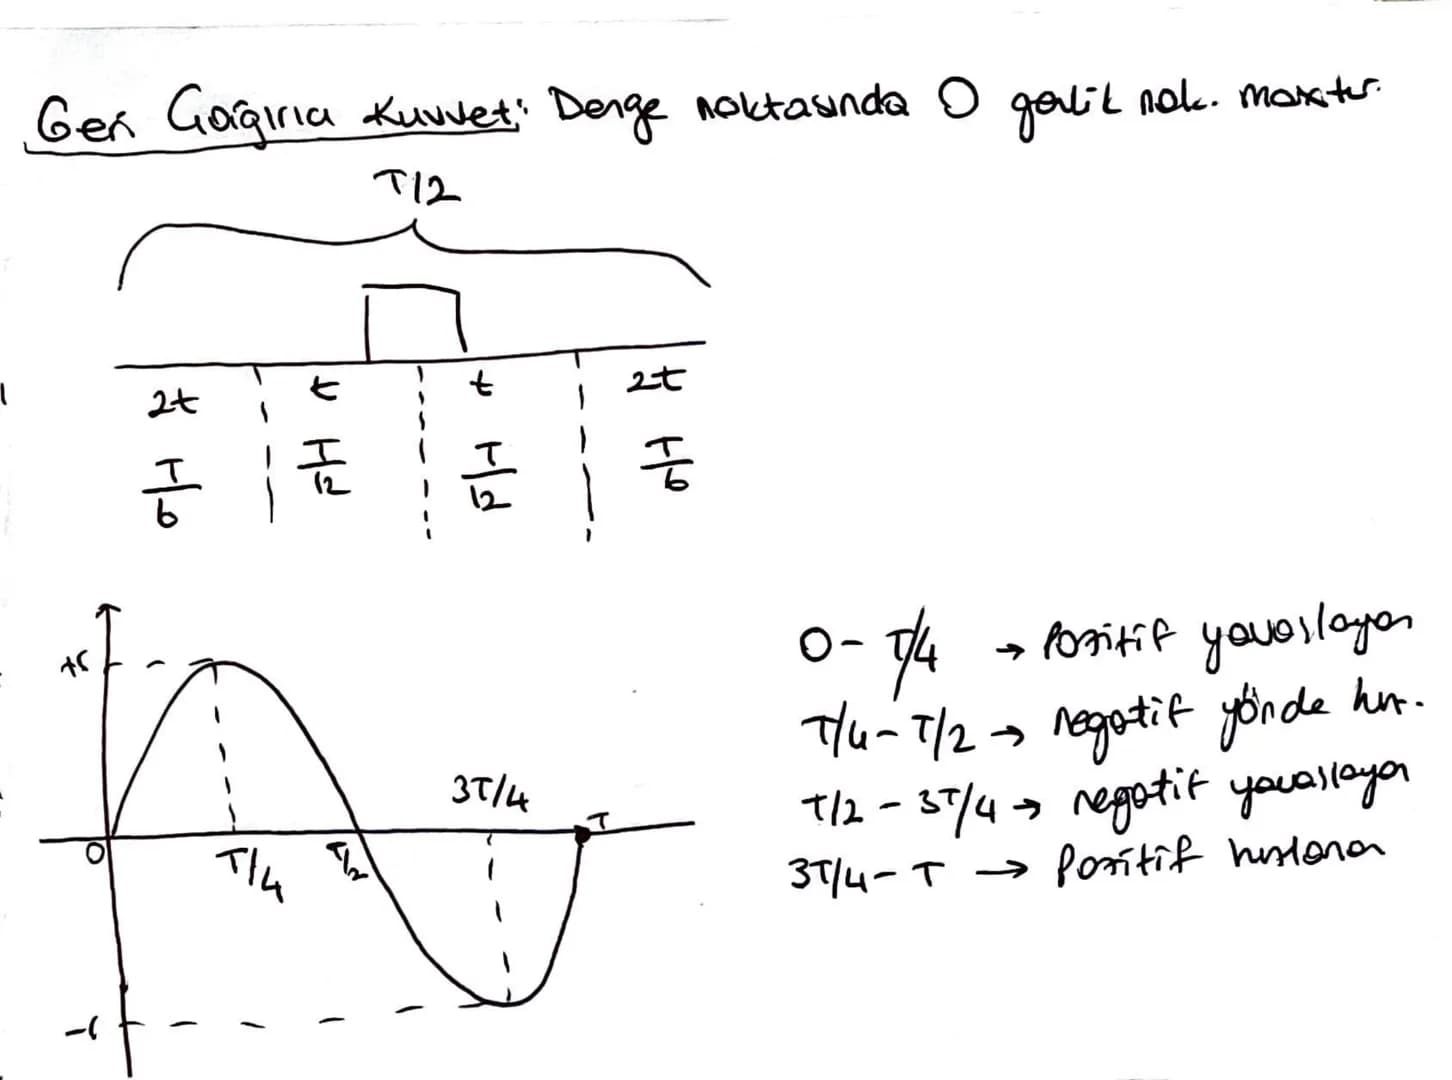 Geri Çağırıcı Kuvvet: Denge noktasında 0 genlik nok. maxtır.
T/2
2t t t 2t
T/6 T/12 T/12 T/6
+r
0 T/4 T/2 3T/4 T
-r
0 - T/4 → Pozitif yavaşlayan
T/4 - T/2 → negatif yönde hız.
T/2 - 3T/4 → negatif yavaşlayan
3T/4 - T → Pozitif hızlanan